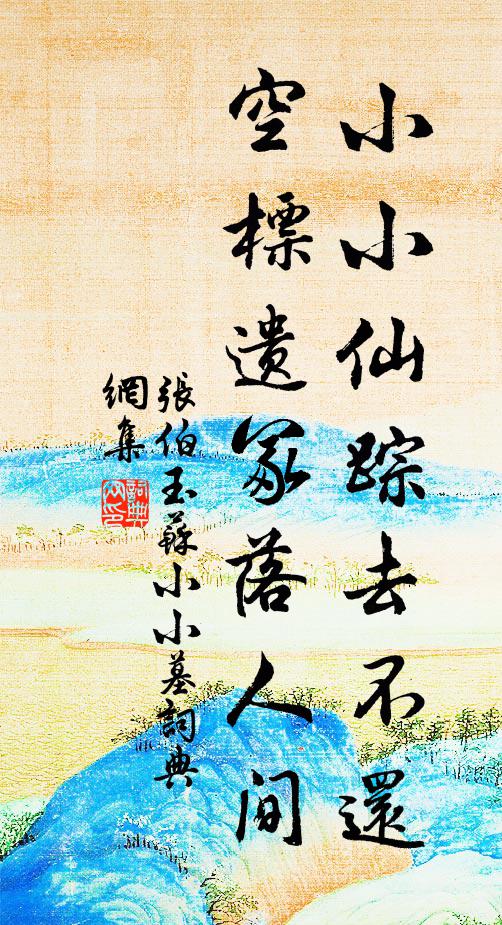 小小仙踪去不還
空標遺冢落人间
張伯玉蘇小小墓詞典
網集
詞典